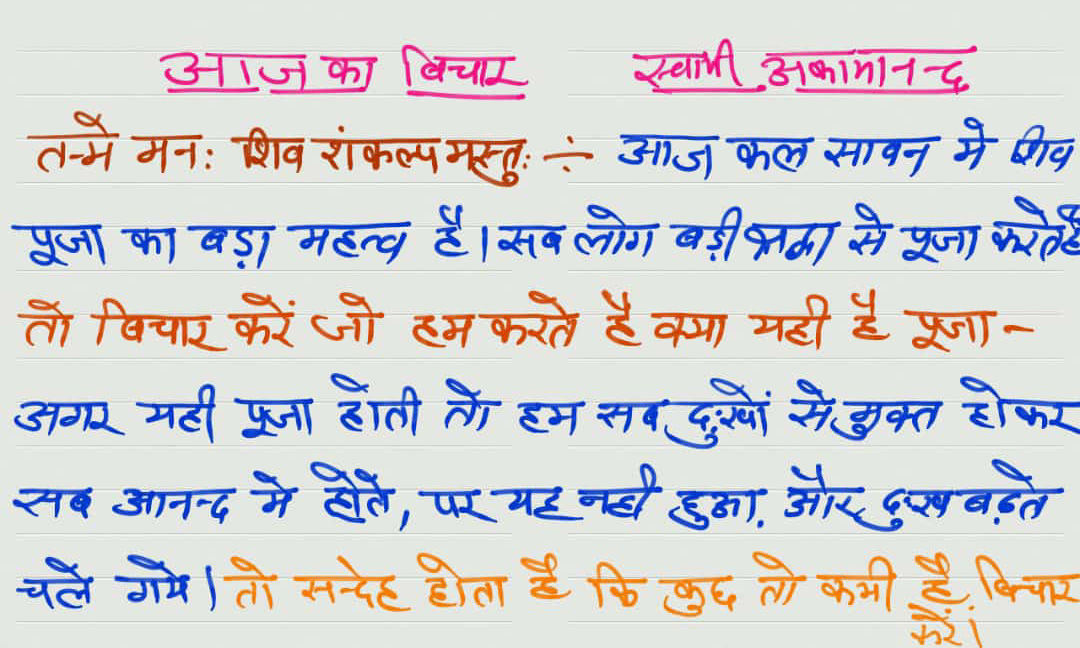 आज का विचार स्वामी अकामानन्द
तन्मे मन: शिव शंकल्पमस्तु: ÷ आज कल सावन मे शिव
पूजा का बड़ा महत्व है। सब लोग बड़ी श्रद्धा से पूजा करते है
तो विचार करें जो हम करते है क्या यही है पूजा -
अगर यही पूजा होती तो हम सब दु:खों से मुक्त होकर
सब आनन्द मे होते, पर यह नही हुआ. और दुःख बढ़ते
चले गये। तो सन्देह होता है कि कुछ तो कमी है. विचार
करें।